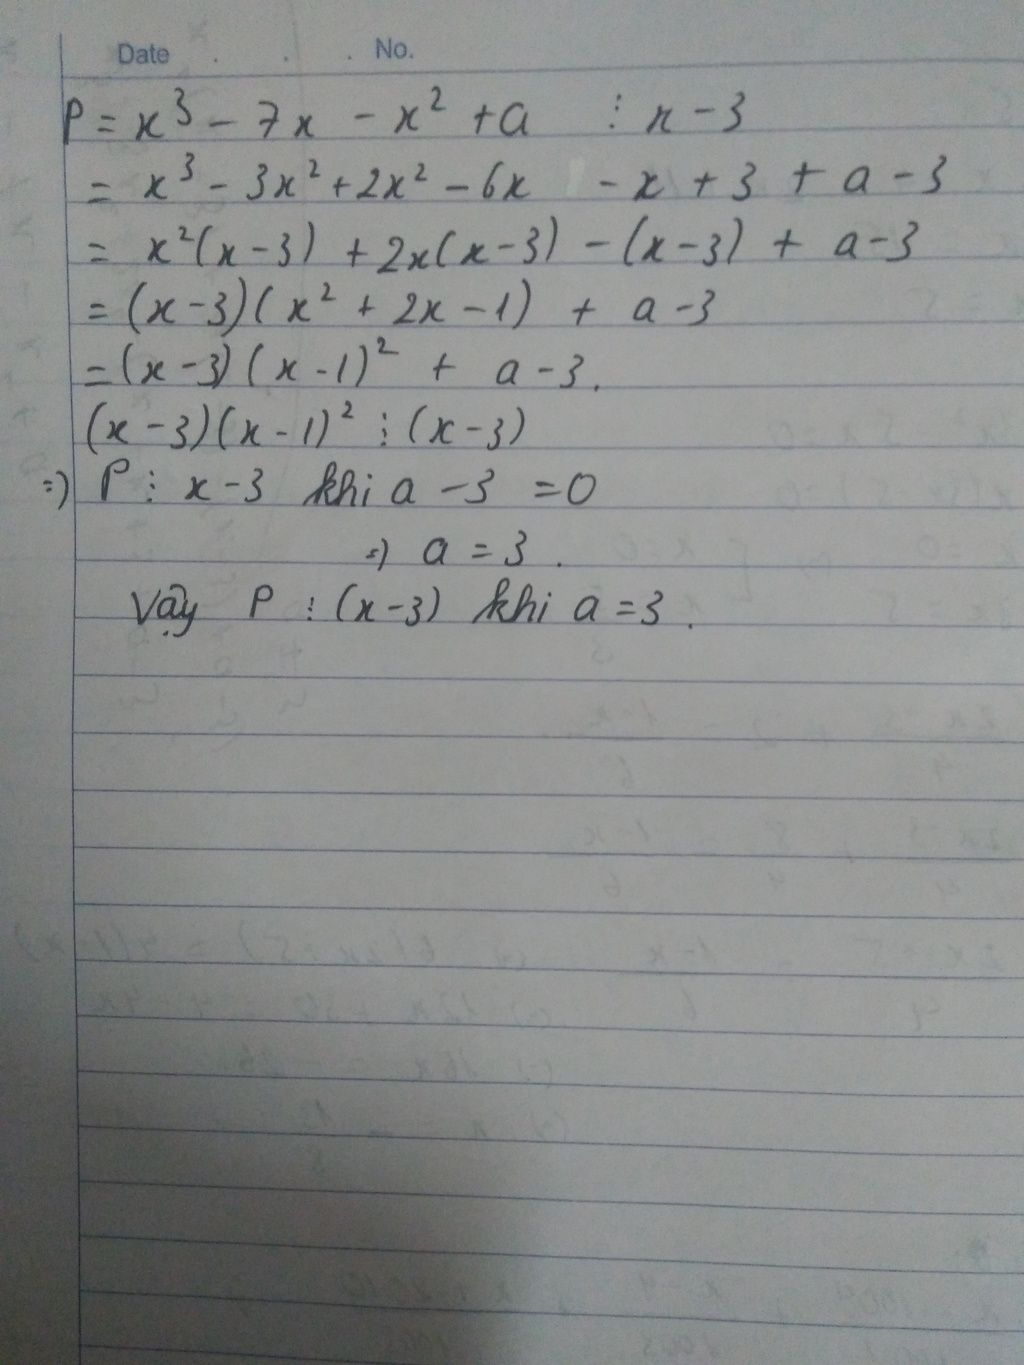 Date . . . No.
P = x³ - 7x - x² + a ⋮ x - 3
= x³ - 3x² + 2x² - 6x - x + 3 + a - 3
= x²(x - 3) + 2x(x - 3) - (x - 3) + a - 3
= (x - 3)(x² + 2x - 1) + a - 3
= (x - 3)(x - 1)² + a - 3.
(x - 3)(x - 1)² ⋮ (x - 3)
=) P ⋮ x - 3 khi a - 3 = 0
=) a = 3.
Vậy P ⋮ (x - 3) khi a = 3.